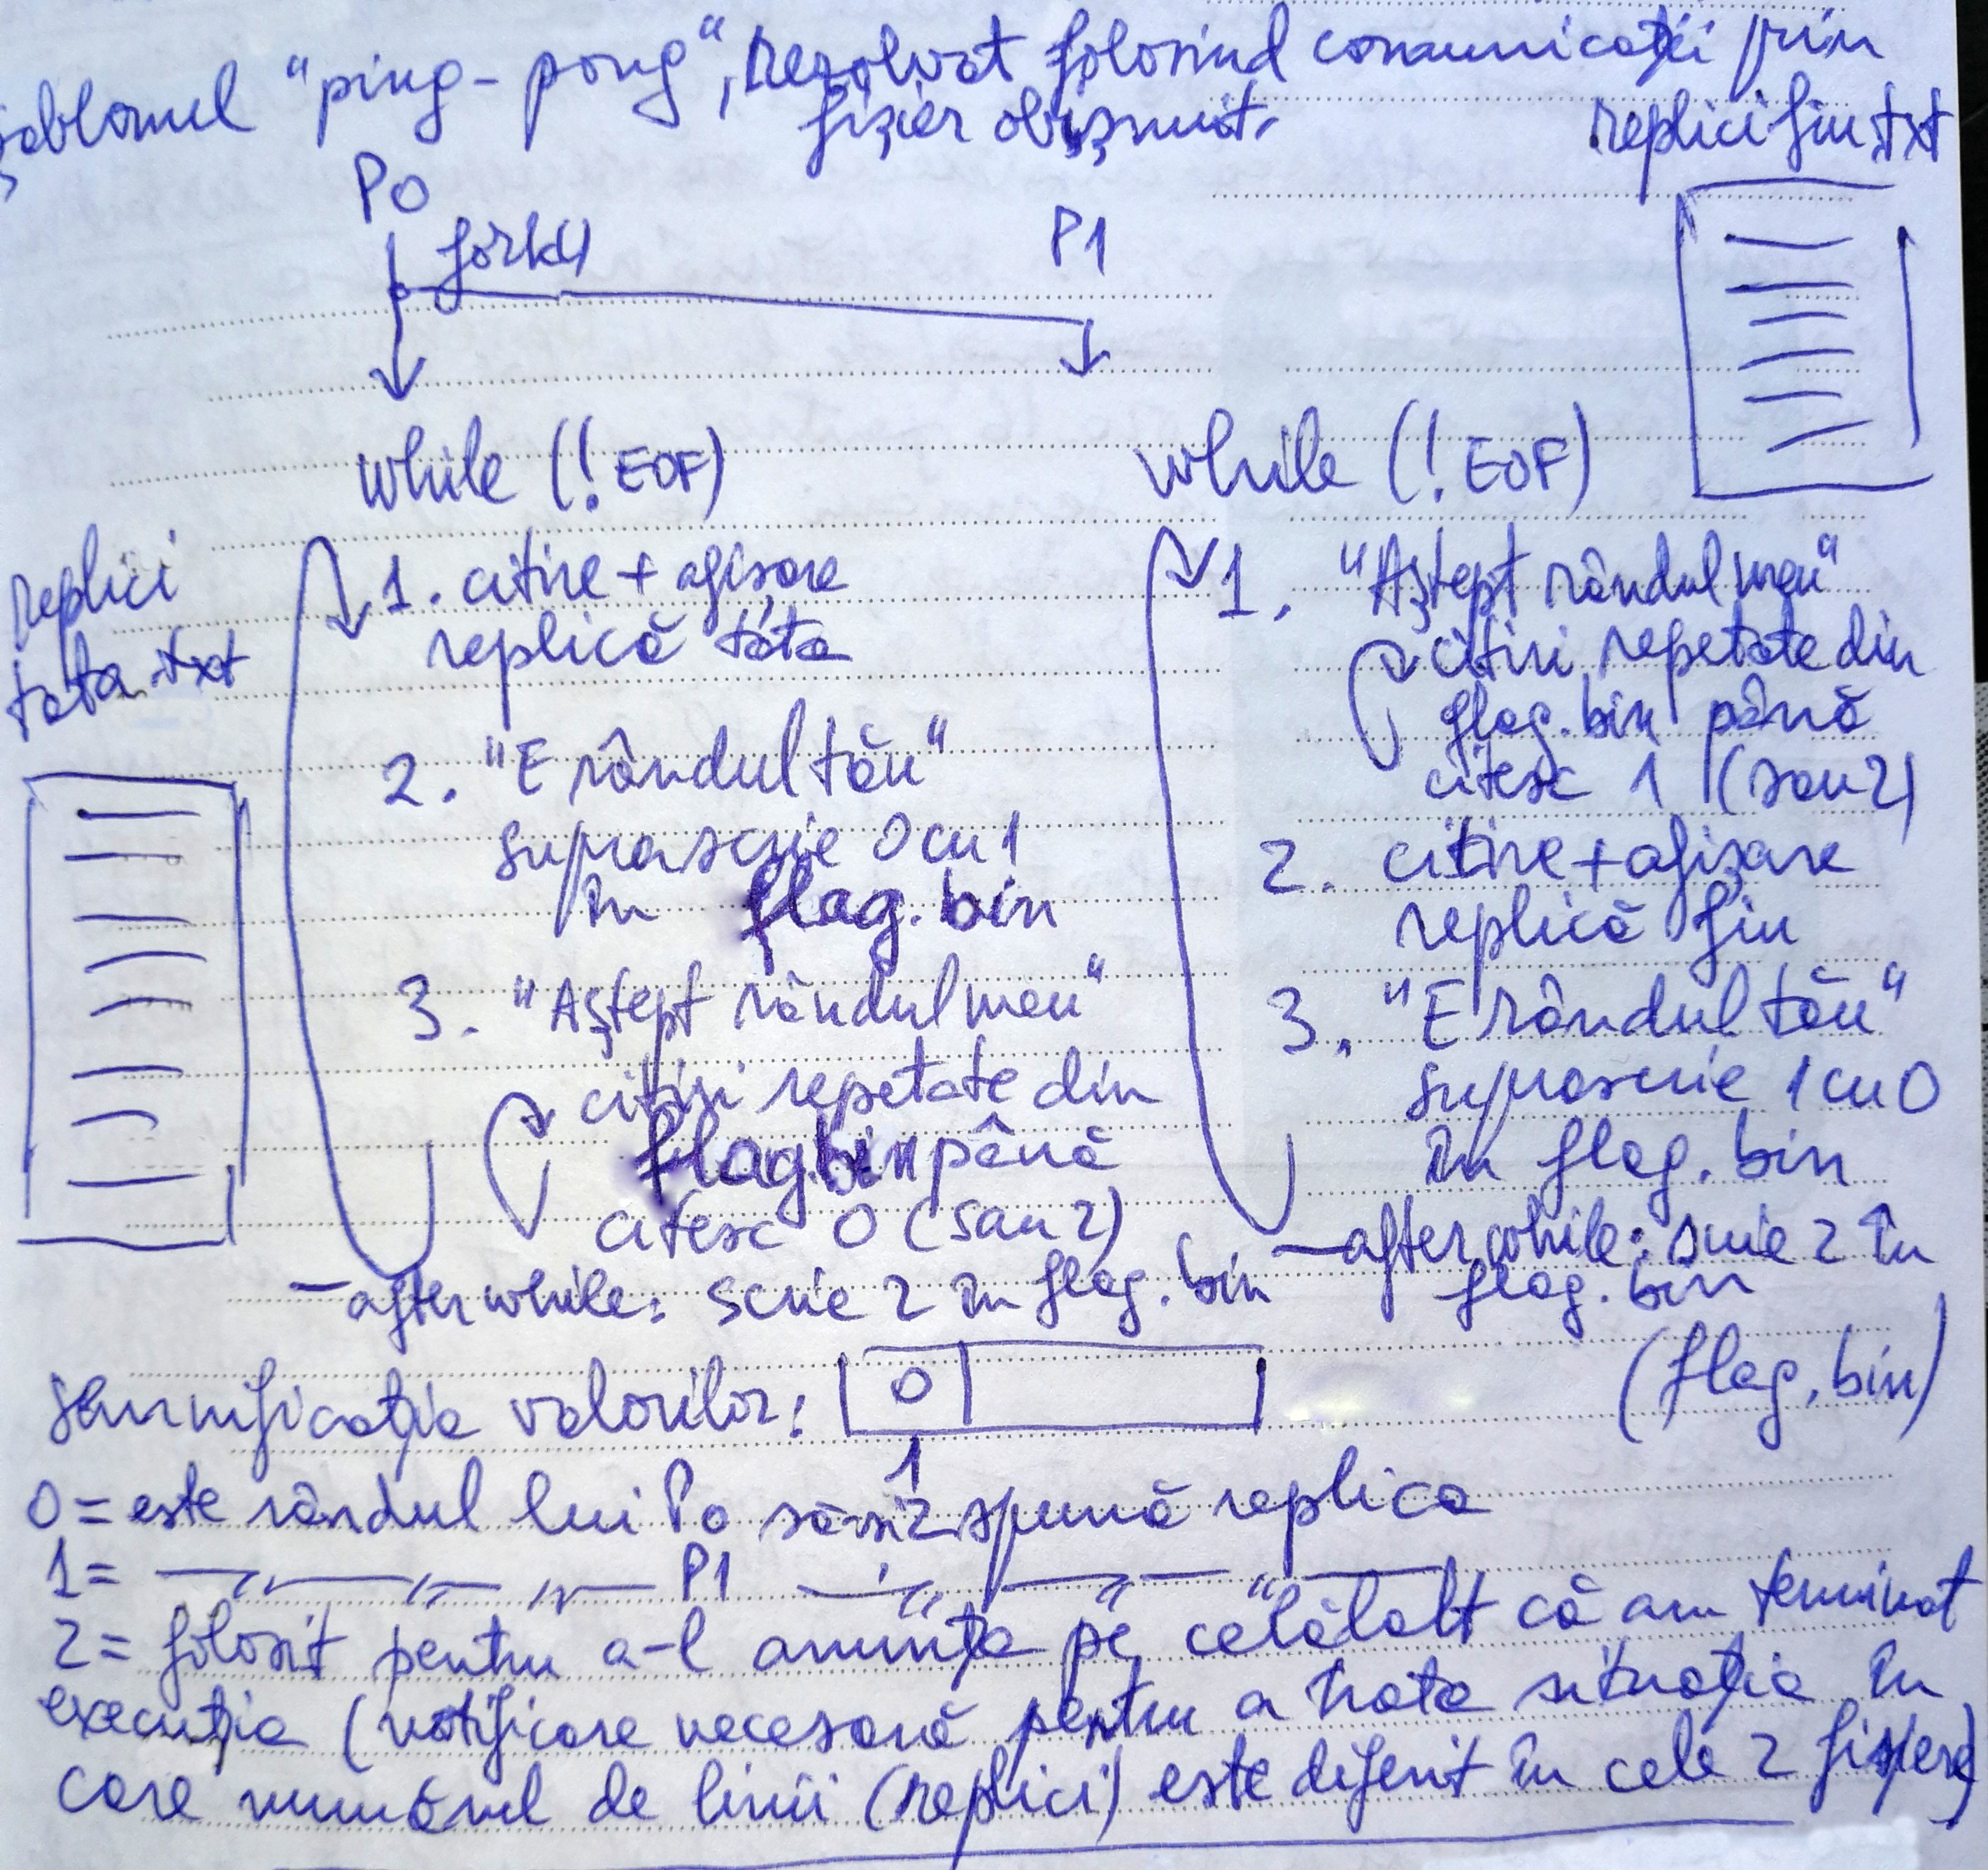 șablonul "ping-pong", rezolvat folosind comunicații prin
fișier obișnuit.
replicifiu.txt
P0
fork()
P1
while (! EOF)
1. citire + afisare
replică tata
2. "E rândul tău"
suprascrie 0 cu 1
în flag.bin
3. "Aștept rândul meu"
citiri repetate din
flag.bin până
citesc 0 (sau 2)
— after while: scrie 2 în flag.bin
replici
tata.txt
while (! EOF)
1. "Aștept rândul meu"
citiri repetate din
flag.bin până
citesc 1 (sau 2)
2. citire + afișare
replică fiu
3. "E rândul tău"
suprascrie 1 cu 0
în flag.bin
— after while: scrie 2 în
flag.bin
semnificația valorilor: 0
(flag.bin)
1
2
0 = este rândul lui P0 să-și spună replica
1 = —〃—〃—〃— P1 —〃—〃—〃—
2 = folosit pentru a-l anunța pe celălalt că am terminat
execuția (notificare necesară pentru a trata situația în
care numărul de linii (replici) este diferit în cele 2 fișiere)